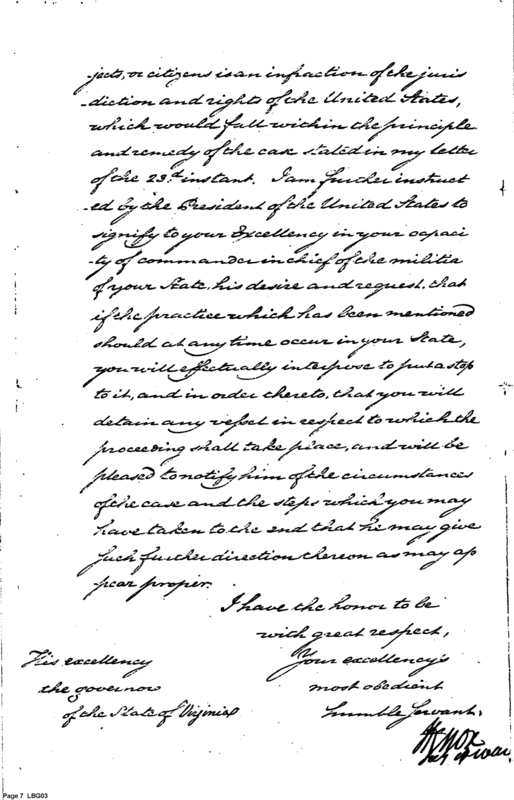 -jects, or citizens is an infraction of the juris
-diction and rights of the United States,
which would fall within the principle
and remedy of the case stated in my letter
of the 23.d instant. I am further instruct
ed by the President of the United States to
signify to your Excellency in your capaci
-ty of commander in chief of the militia
of your State, his desire and request, that
if the practice which has been mentioned
should at any time occur in your State,
you will effectually interpose to put a stop
to it, and in order thereto, that you will
detain any vessel in respect to which the
proceeding shall take place, and will be
pleased to notify him of the circumstances
of the case and the steps which you may
have taken to the end that he may give
such further direction thereon as may ap
-pear proper.
I have the honor to be
with great respect,
Your excellency's
most obedient
humble servant.
His excellency
the governor
of the State of Virginia
HKnox
Secy of war
Page 7 LBG03